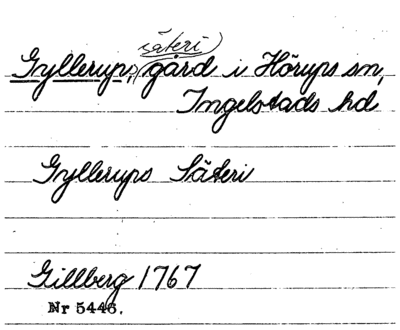 säteri)
Gyllerup, (gård i Hörups sn,
Ingelstads hd
Gyllerups Säteri
Gillberg 1767
Nr 5446.